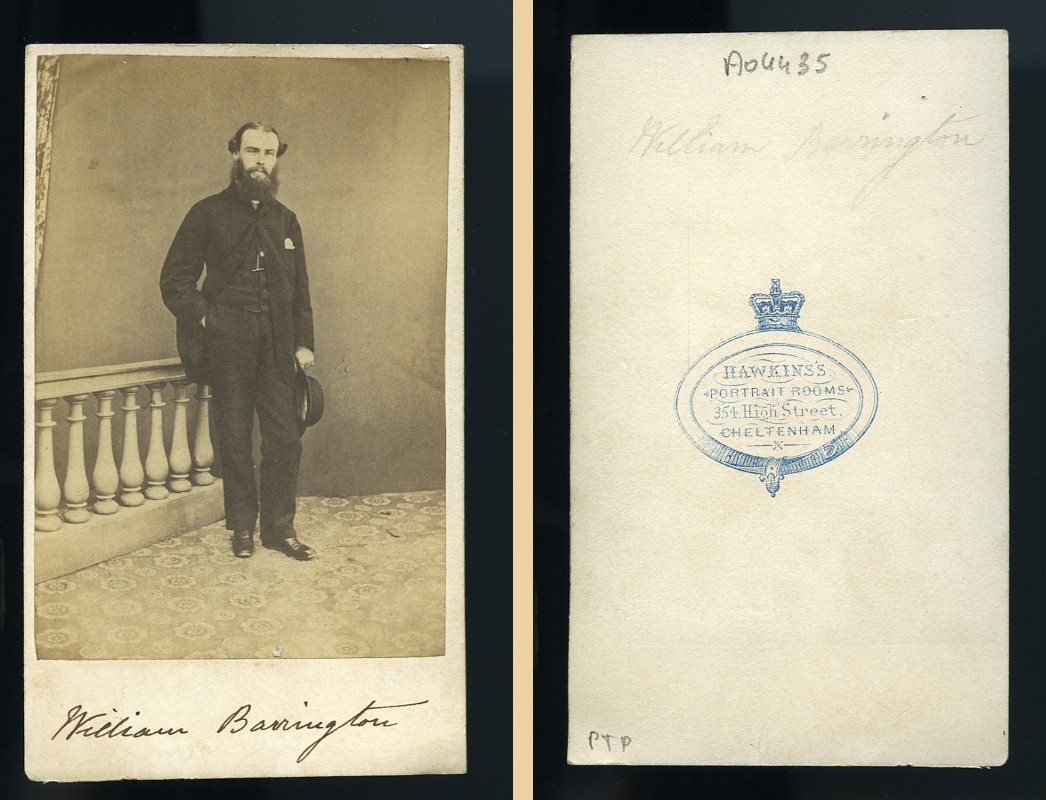 William Barrington
A04435
William Barrington
HAWKINS'S
PORTRAIT ROOMS
354, High Street,
CHELTENHAM
PTP